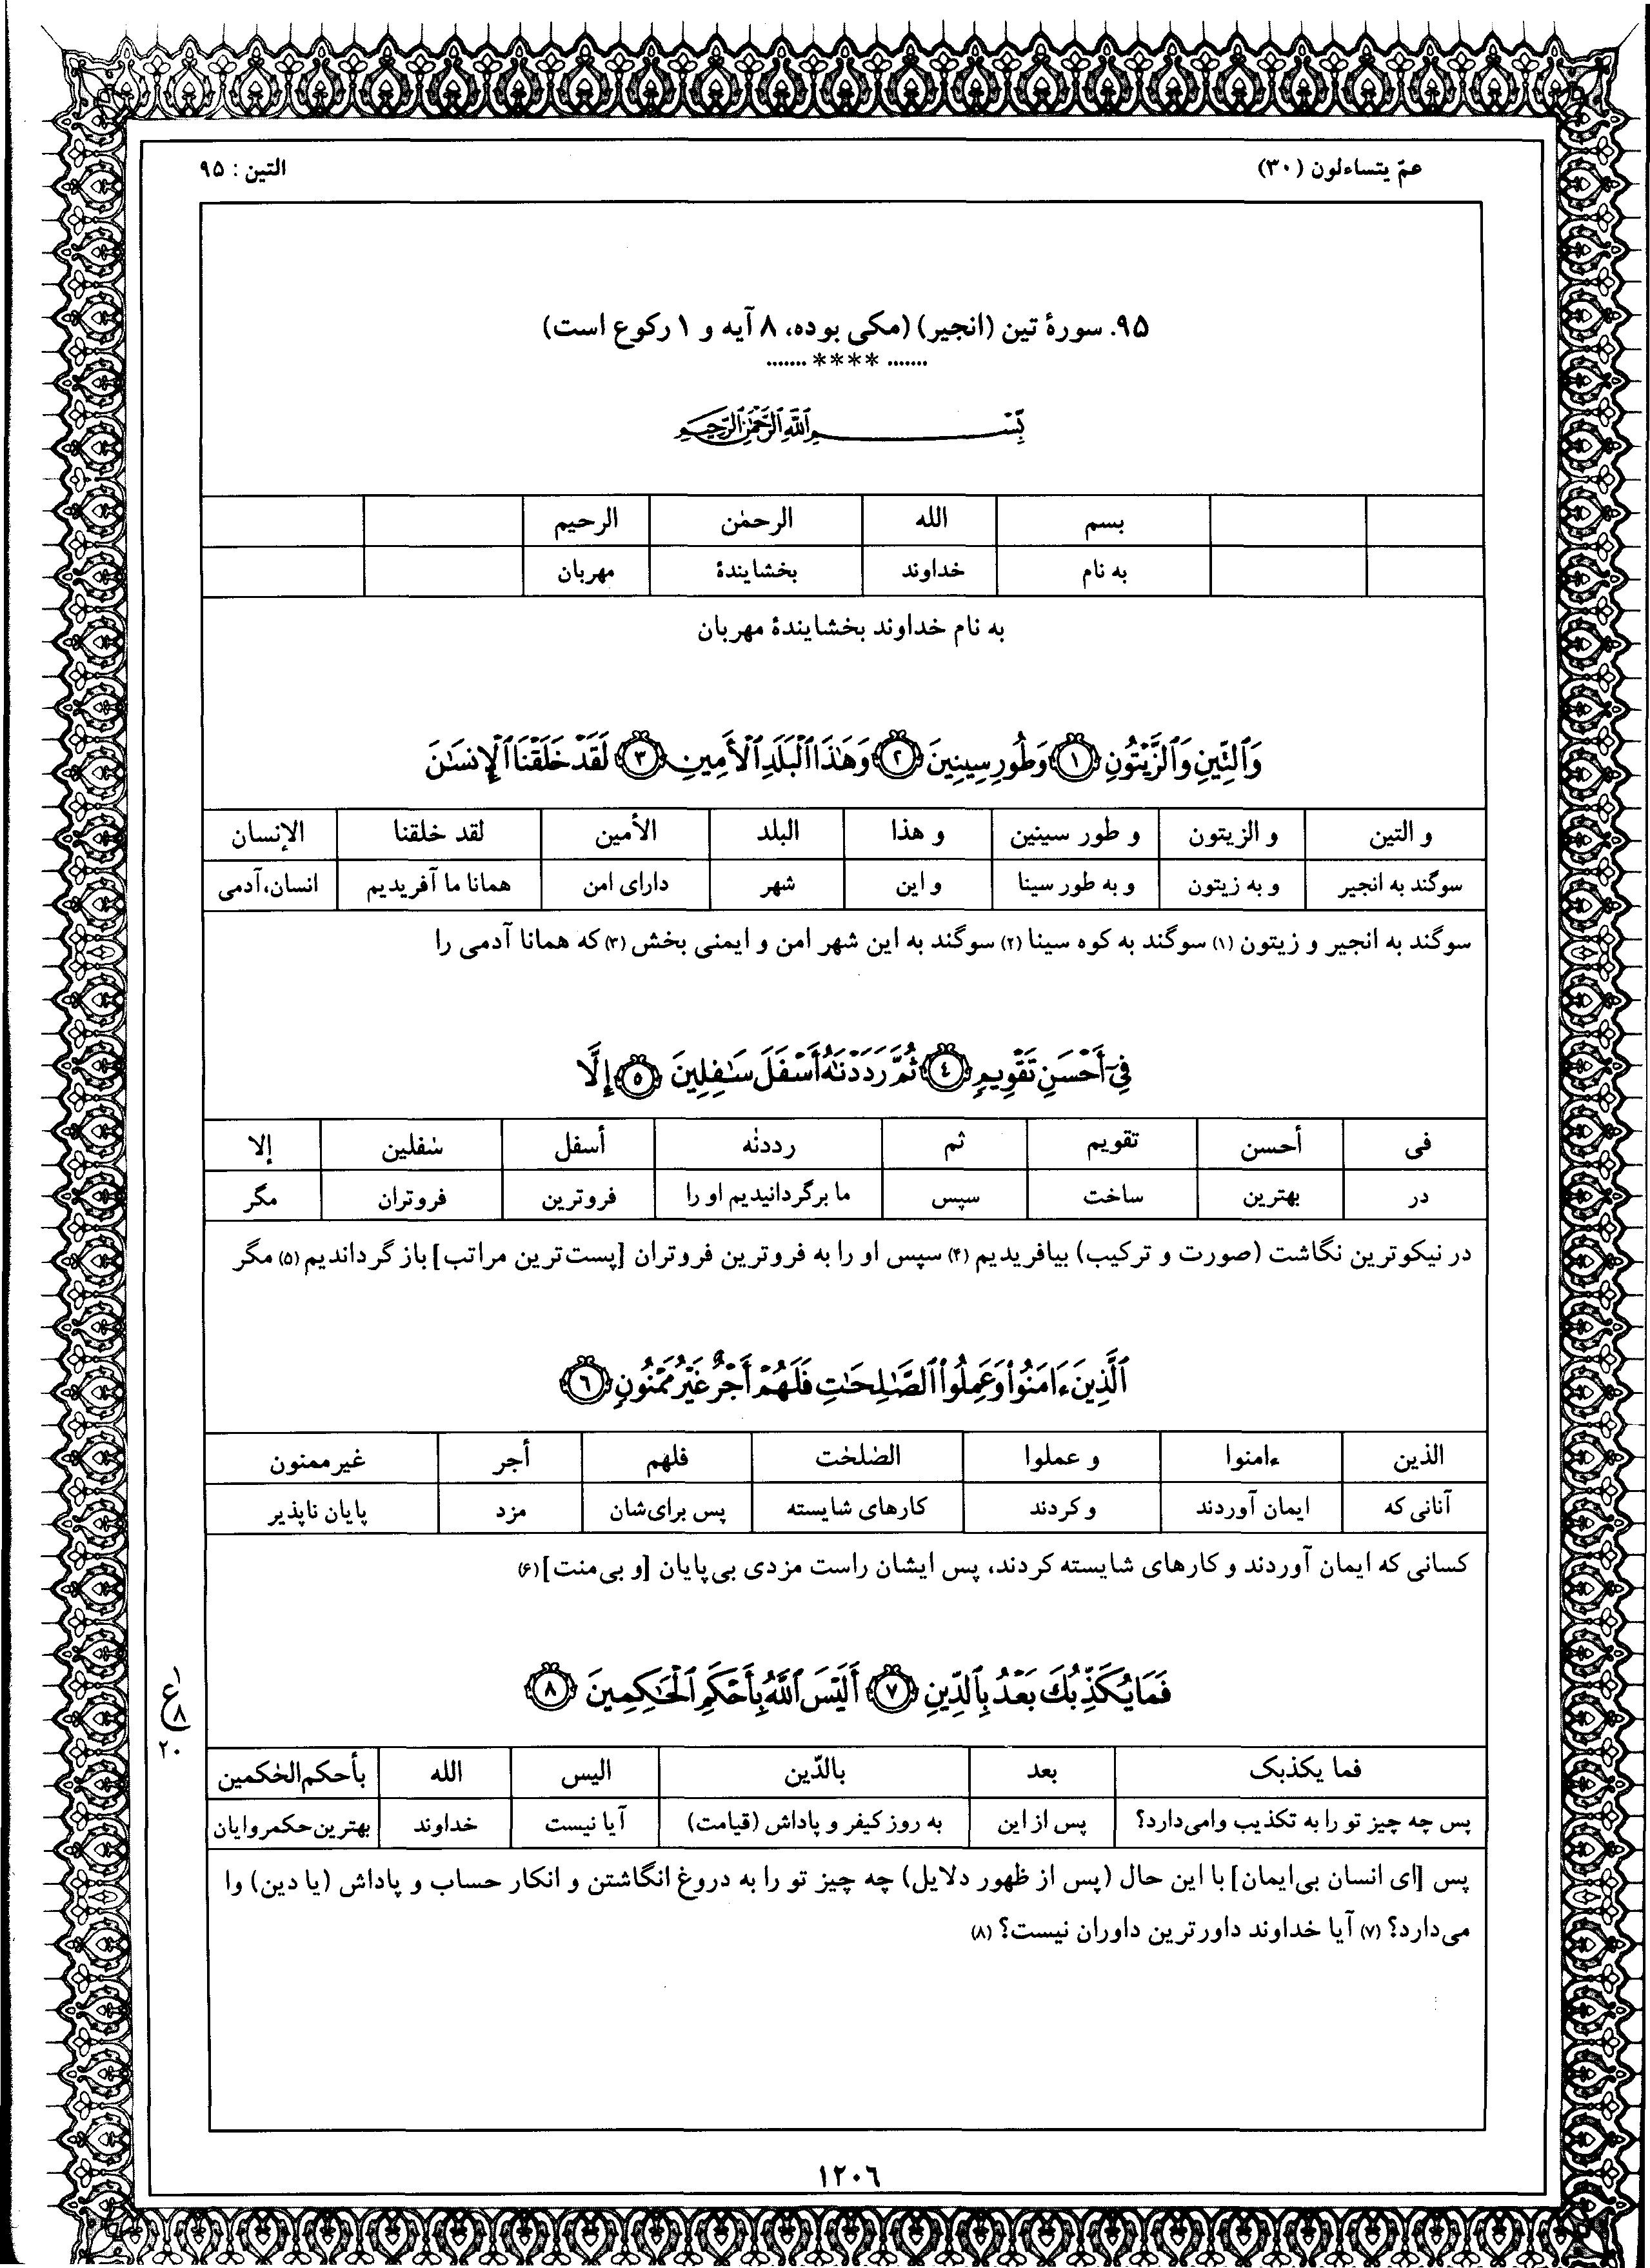 عمّ یتساءلون (۳۰)
التین : ۹۵
۹۵. سورهٔ تین (انجیر) (مکی بوده، ۸ آیه و ۱ رکوع است)
....... **** .......
بِسْمِ ٱللَّهِ ٱلرَّحْمَٰنِ ٱلرَّحِيمِ
بسم الله الرحمٰن الرحیم
به نام خداوند بخشایندهٔ مهربان
به نام خداوند بخشایندهٔ مهربان
وَٱلتِّينِ وَٱلزَّيْتُونِ ١ وَطُورِ سِينِينَ ٢ وَهَٰذَا ٱلْبَلَدِ ٱلْأَمِينِ ٣ لَقَدْ خَلَقْنَا ٱلْإِنسَٰنَ
و التین و الزیتون و طور سینین و هذا البلد الأمین لقد خلقنا الإنسان
سوگند به انجیر و به زیتون و به طور سینا و این شهر دارای امن همانا ما آفریدیم انسان، آدمی
سوگند به انجیر و زیتون (۱) سوگند به کوه سینا (۲) سوگند به این شهر امن و ایمنی بخش (۳) که همانا آدمی را
فِىٓ أَحْسَنِ تَقْوِيمٍ ٤ ثُمَّ رَدَدْنَٰهُ أَسْفَلَ سَٰفِلِينَ ٥ إِلَّا
فی أحسن تقویم ثم رددنٰه أسفل سٰفلین إلا
در بهترین ساخت سپس ما برگردانیدیم او را فروترین فروتران مگر
در نیکوترین نگاشت (صورت و ترکیب) بیافریدیم (۴) سپس او را به فروترین فروتران [پست‌ترین مراتب] باز گرداندیم (۵) مگر
ٱلَّذِينَ ءَامَنُوا۟ وَعَمِلُوا۟ ٱلصَّٰلِحَٰتِ فَلَهُمْ أَجْرٌ غَيْرُ مَمْنُونٍ ٦
الذین ءامنوا و عملوا الصٰلحٰت فلهم أجر غیر ممنون
آنانی که ایمان آوردند و کردند کارهای شایسته پس برای‌شان مزد پایان ناپذیر
کسانی که ایمان آوردند و کارهای شایسته کردند، پس ایشان راست مزدی بی‌پایان [و بی‌منت] (۶)
فَمَا يُكَذِّبُكَ بَعْدُ بِٱلدِّينِ ٧ أَلَيْسَ ٱللَّهُ بِأَحْكَمِ ٱلْحَٰكِمِينَ ٨
ع ۱
۸
۲۰
فما یکذبک بعد بالدّین الیس الله بأحکم الحٰکمین
پس چه چیز تو را به تکذیب وامی‌دارد؟ پس از این به روز کیفر و پاداش (قیامت) آیا نیست خداوند بهترین حکمروایان
پس [ای انسان بی‌ایمان] با این حال (پس از ظهور دلایل) چه چیز تو را به دروغ انگاشتن و انکار حساب و پاداش (یا دین) وا
می‌دارد؟ (۷) آیا خداوند داورترین داوران نیست؟ (۸)
۱۲۰۶